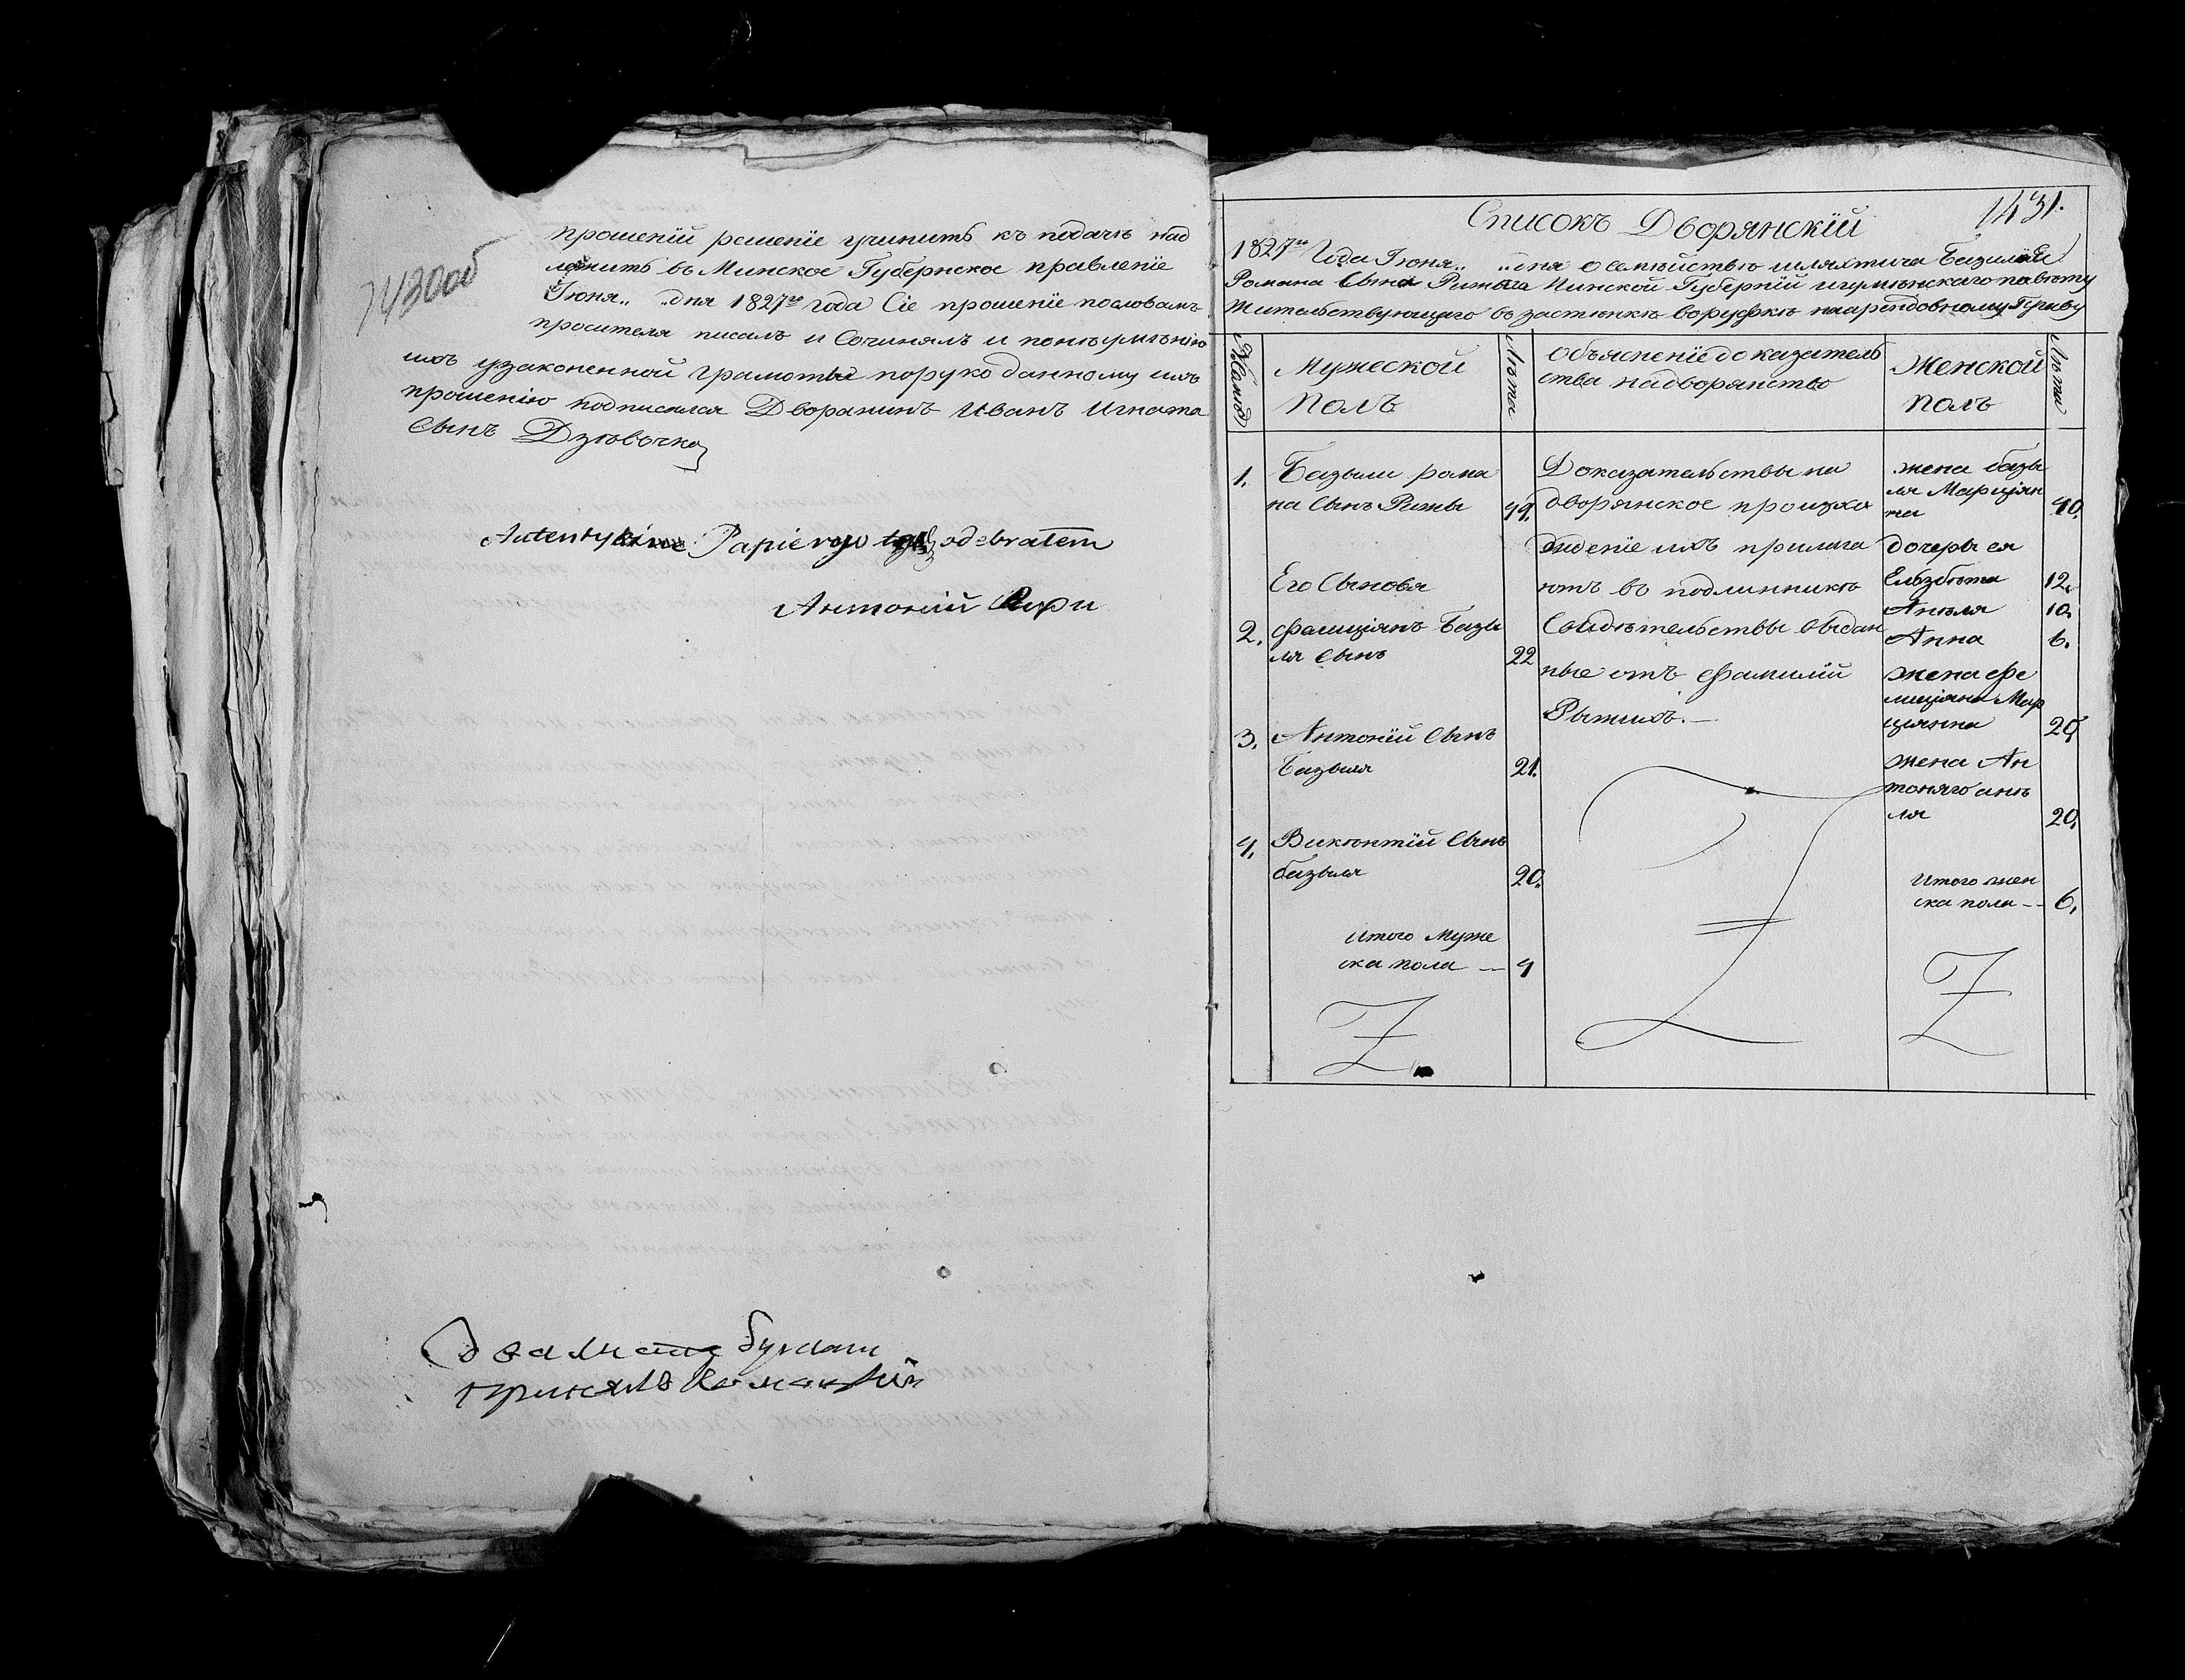 1430об
прошеній решеніе учинить къ подачѣ над
лежитъ въ Минское Губернское правленіе
Іюня „ „ дня 1827го года Сіе прошеніе пословамъ
просителя писалъ и Сочинялъ и понеумѣнію
ихъ узаконенной грамоты поруко данному имъ
прошенію подписался Дворанинъ Иванъ Игната
Сынъ Дзювочко
Papierow odebrałem
Антоній
бумаги
принялъ
1431.
Списокъ Дворянскій
1827го Года Іюня „ „ дня о семѣйствѣ шляхтича Базилія
Романа Сына Рижыга Минской Губерніи игуменскаго повѣту
Жительствующаго въ застѣнкѣ воруфкѣ
Мужеской
полъ
Лѣта
Объясненіе доказатель
ства надворянство
Женской
полъ
Лѣта
1.
Базыли рома
на Сынъ Рижы
49.
Доказательствы на
дворянское происхо
жденіе ихъ прилага
ютъ въ подлинникѣ
Свидѣтельствы выдан
ные отъ Фамиліи
Рыжихъ. —
жена базы
ля Марціян
на
40.
дочеры ея
Ельзбета
12.
Анѣля
10.
Анна
6.
Его Сыновя
2.
Фелиціянъ Базы
ля Сынъ
22
жена Фе
лиціяна Мар
цыянна
20.
3.
Антоній Сынъ
Базыля
21.
жена Ан
тоняго анѣ
ля
20.
4.
Викентій Сынъ
базыля
20.
Итого Муже
ска пола —
4
Итого жен
ска пола --
6.